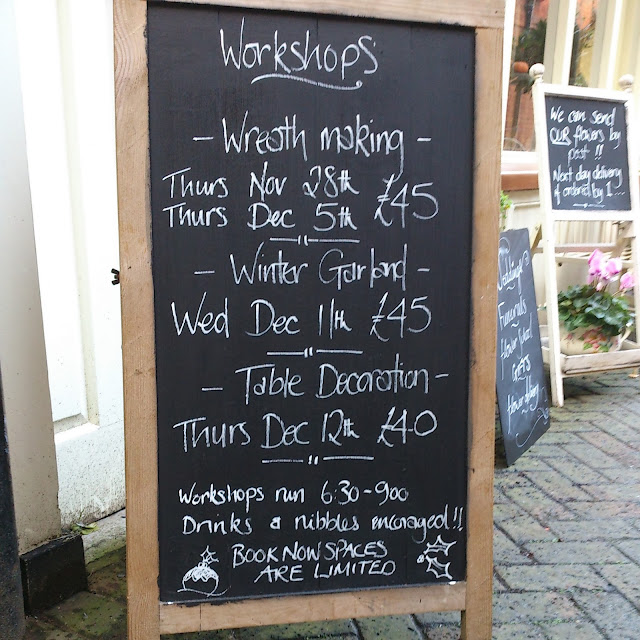 Workshops
- Wreath making -
Thurs Nov 28th £45
Thurs Dec 5th
- Winter Garland -
Wed Dec 11th £45
- Table Decoration -
Thurs Dec 12th £40
Workshops run 6:30-900
Drinks & nibbles encoraged!!
BOOK NOW SPACES
ARE LIMITED
We can send
OUR flowers by
post !!
Next day delivery
if ordered by 1
Weddings
Funerals
flower
GIFTS
flower delivery